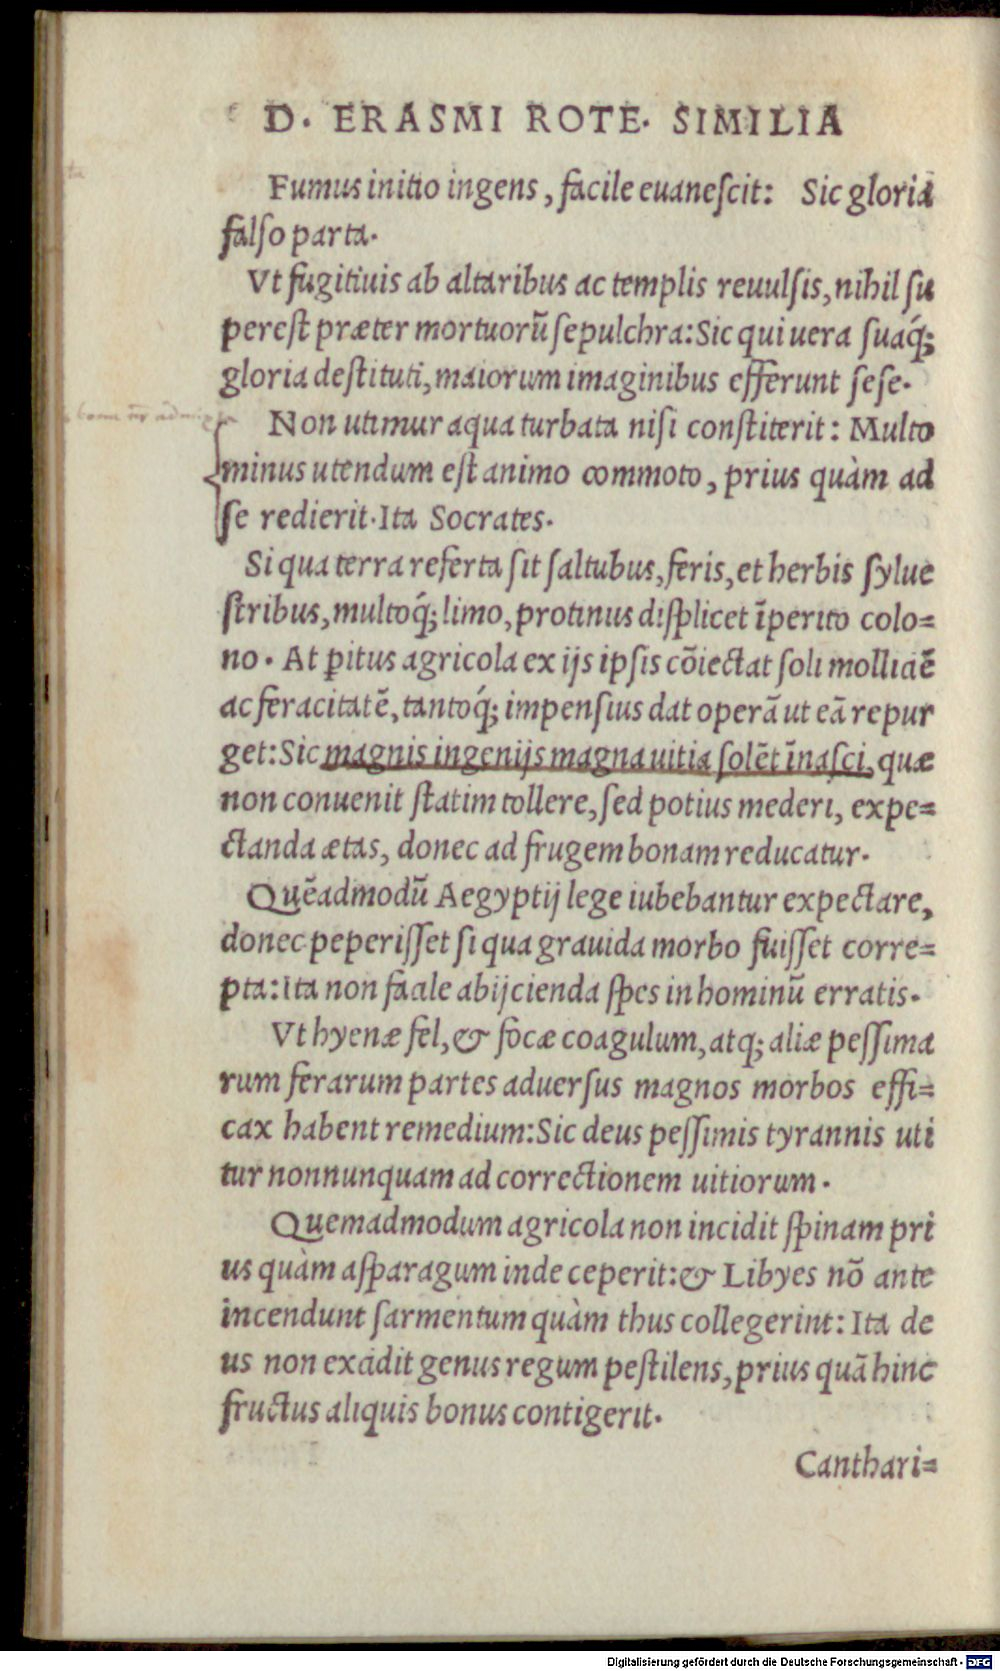 D. ERASMI ROTE. SIMILIA
Fumus initio ingens, facile euaneſcit: Sic gloria
falſo parta.
Vt fugitiuis ab altaribus ac templis reuulſis, nihil ſu
pereſt præter mortuorũ ſepulchra: Sic qui uera ſuaq́;
gloria deſtituti, maiorum imaginibus efferunt ſeſe.
Non utimur aqua turbata niſi conſtiterit: Multo
minus utendum eſt animo commoto, prius quàm ad
ſe redierit. Ita Socrates.
Si qua terra referta ſit ſaltubus, feris, et herbis ſylue
ſtribus, multoq́; limo, protinus diſplicet ĩperito colo=
no. At ꝑitus agricola ex ijs ipſis cõiectat ſoli molliciẽ
ac feracitatẽ, tantoq́; impenſius dat operã ut eã repur
get: Sic magnis ingenijs magna uitia ſolẽt ĩnaſci, quæ
non conuenit ſtatim tollere, ſed potius mederi, expe=
ctanda ætas, donec ad frugem bonam reducatur.
Quẽadmodũ Aegyptij lege iubebantur expectare,
donec peperiſſet ſi qua grauida morbo fuiſſet corre=
pta: ita non facile abijcienda ſpes in hominũ erratis.
Vt hyenæ fel, & focæ coagulum, atq; aliæ peſſima
rum ferarum partes aduerſus magnos morbos effi=
cax habent remedium: Sic deus peſſimis tyrannis uti
tur nonnunquam ad correctionem uitiorum.
Quemadmodum agricola non incidit ſpinam pri
us quàm aſparagum inde ceperit: & Libyes nõ ante
incendunt ſarmentum quàm thus collegerint: Ita de
us non excidit genus regum peſtilens, prius quã hinc
fructus aliquis bonus contigerit.
Canthari=
Digitalisierung gefördert durch die Deutsche Forschungsgemeinschaft - DFG